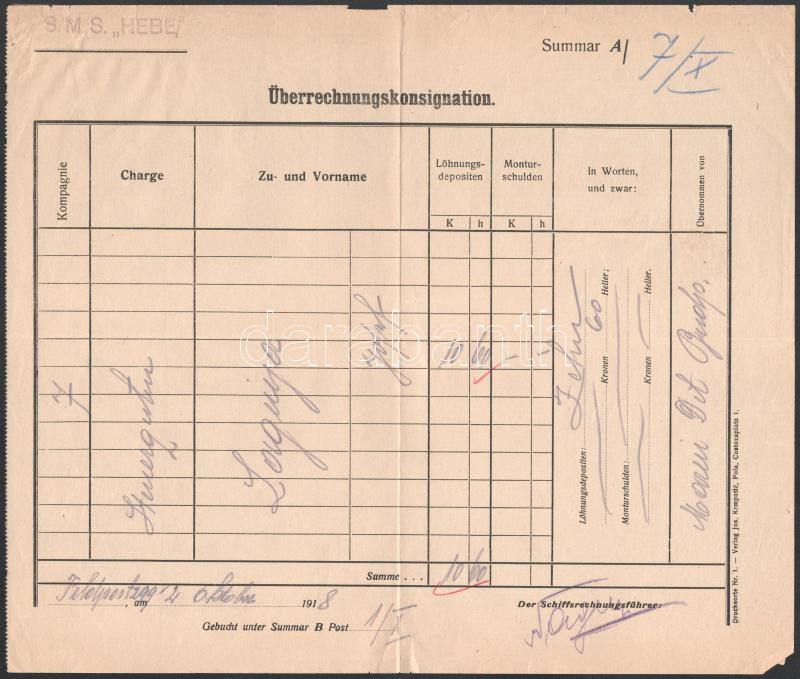 S. M. S. „HEBE"
Summar A/ 7/X
Überrechnungskonsignation.
Kompagnie
Charge
Zu- und Vorname
Löhnungs-
depositen
Montur-
schulden
In Worten,
und zwar:
Übernommen von
K h K h
7
Josef
10 60 - -
Löhnungsdepositen: Zehn
Kronen 60 Heller;
Monturschulden:
Kronen Heller.
Marin Det
darabanth
Summe . . . 10 60
am 2 Oktober 1918
Der Schiffsrechnungsführer:
Gebucht unter Summar B Post 1/X
Drucksorte Nr. 1. — Verlag Jos. Krmpotić, Pola, Custozaplatz 1.